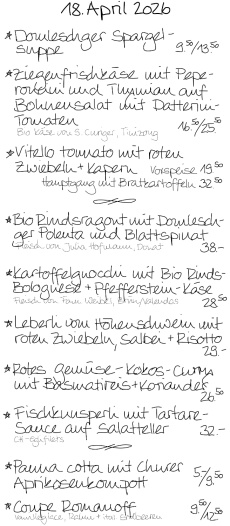 18. April 2026
* Domleschger Spargel-
suppe 9.50/13.50
* Ziegenfrischkäse mit Pepe-
roncini und Thymian auf
Bohnensalat mit Datterini-
Tomaten 16.50/25.50
Bio Käse von S. Clünger, Tinizong
* Vitello tonnato mit roten
Zwiebeln + Kapern Vorspeise 19.50
Hauptgang mit Bratkartoffeln 32.50
* Bio Rindsragout mit Domlesch-
ger Polenta und Blattspinat
Fleisch von Julia Hofmann, Donat 38.-
* Kartoffelgnocchi mit Bio Rinds-
Bolognese + Pfefferstein-Käse
Fleisch von Fam. 28.50
* Leberli vom Höhenschwein mit
roten Zwiebeln, Salbei + Risotto
29.-
* Rotes Gemüse-Kokos-Curry
mit Basmatireis + Koriander
26.50
* Fischknusperli mit Tartare-
Sauce auf Salatteller 32.-
CH-Eglifilets
* Panna cotta mit Churer
Aprikosenkompott 5.-/9.50
* Coupe Romanoff 9.50/12.50
Vanilleglace, Rahm + ital. Erdbeeren